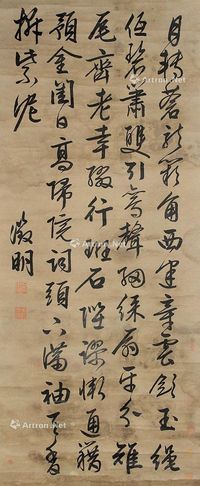 月轉蒼龍闕角西建章雲斂玉繩
低碧簫雙引鸞聲細綵扇平分雉
尾齊老幸綴行班石陛謬慚通籍
預金閨日高歸院詞頭下滿袖天香
拆紫泥
徵明
Artron.Net